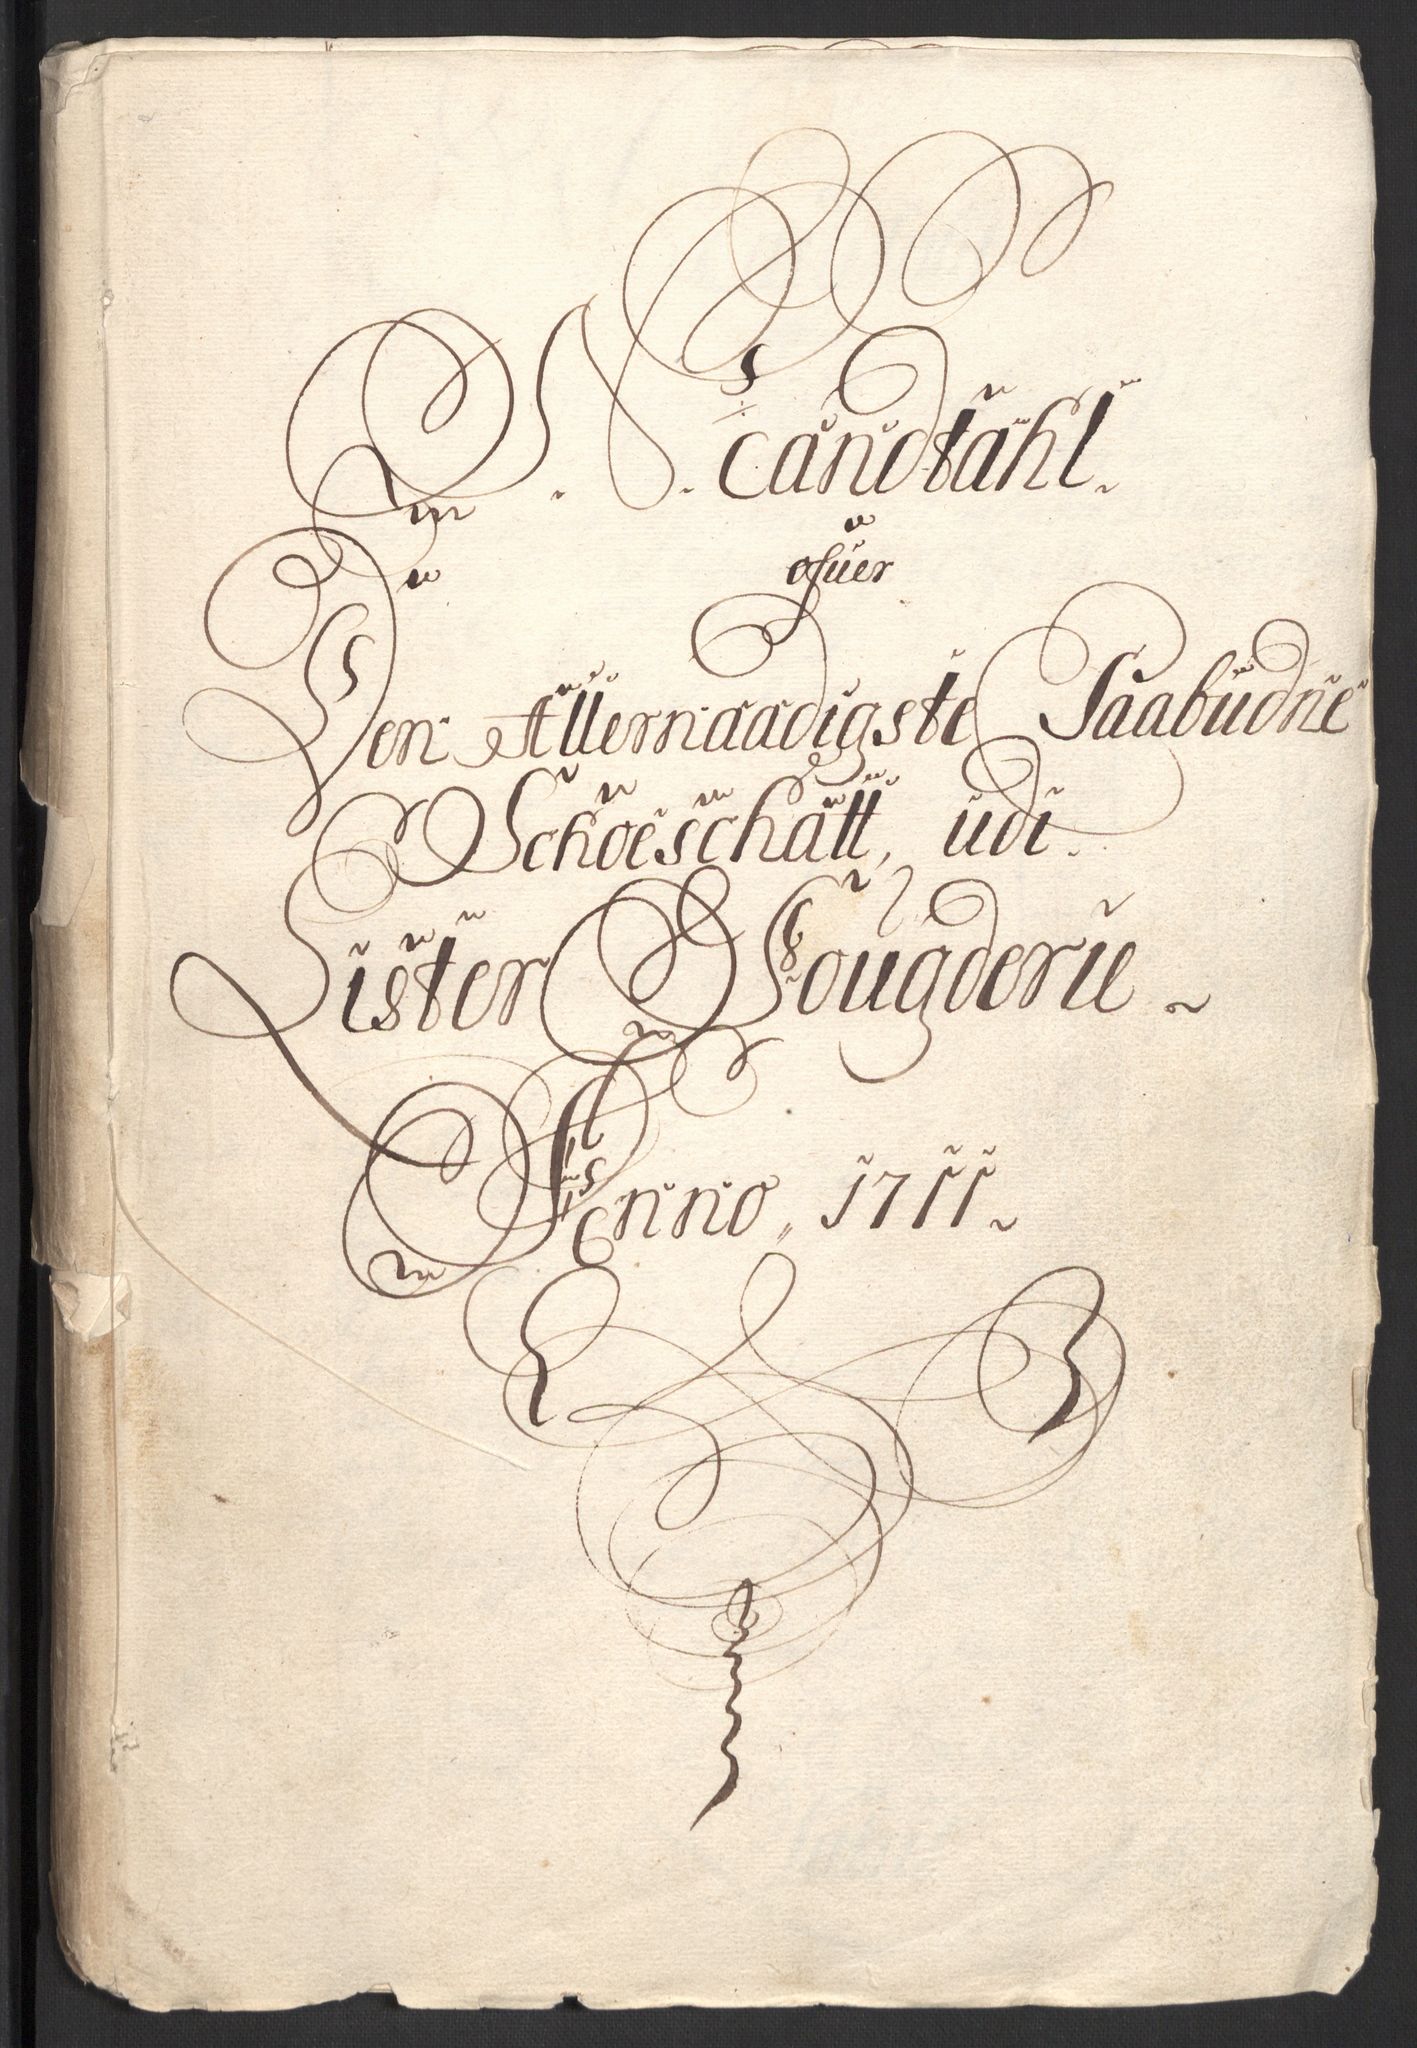 Mandtahl
ofuer
Den Allernaadigste Paabudne
Schoeschatt, udi
Lister Fougderie
Anno 1711